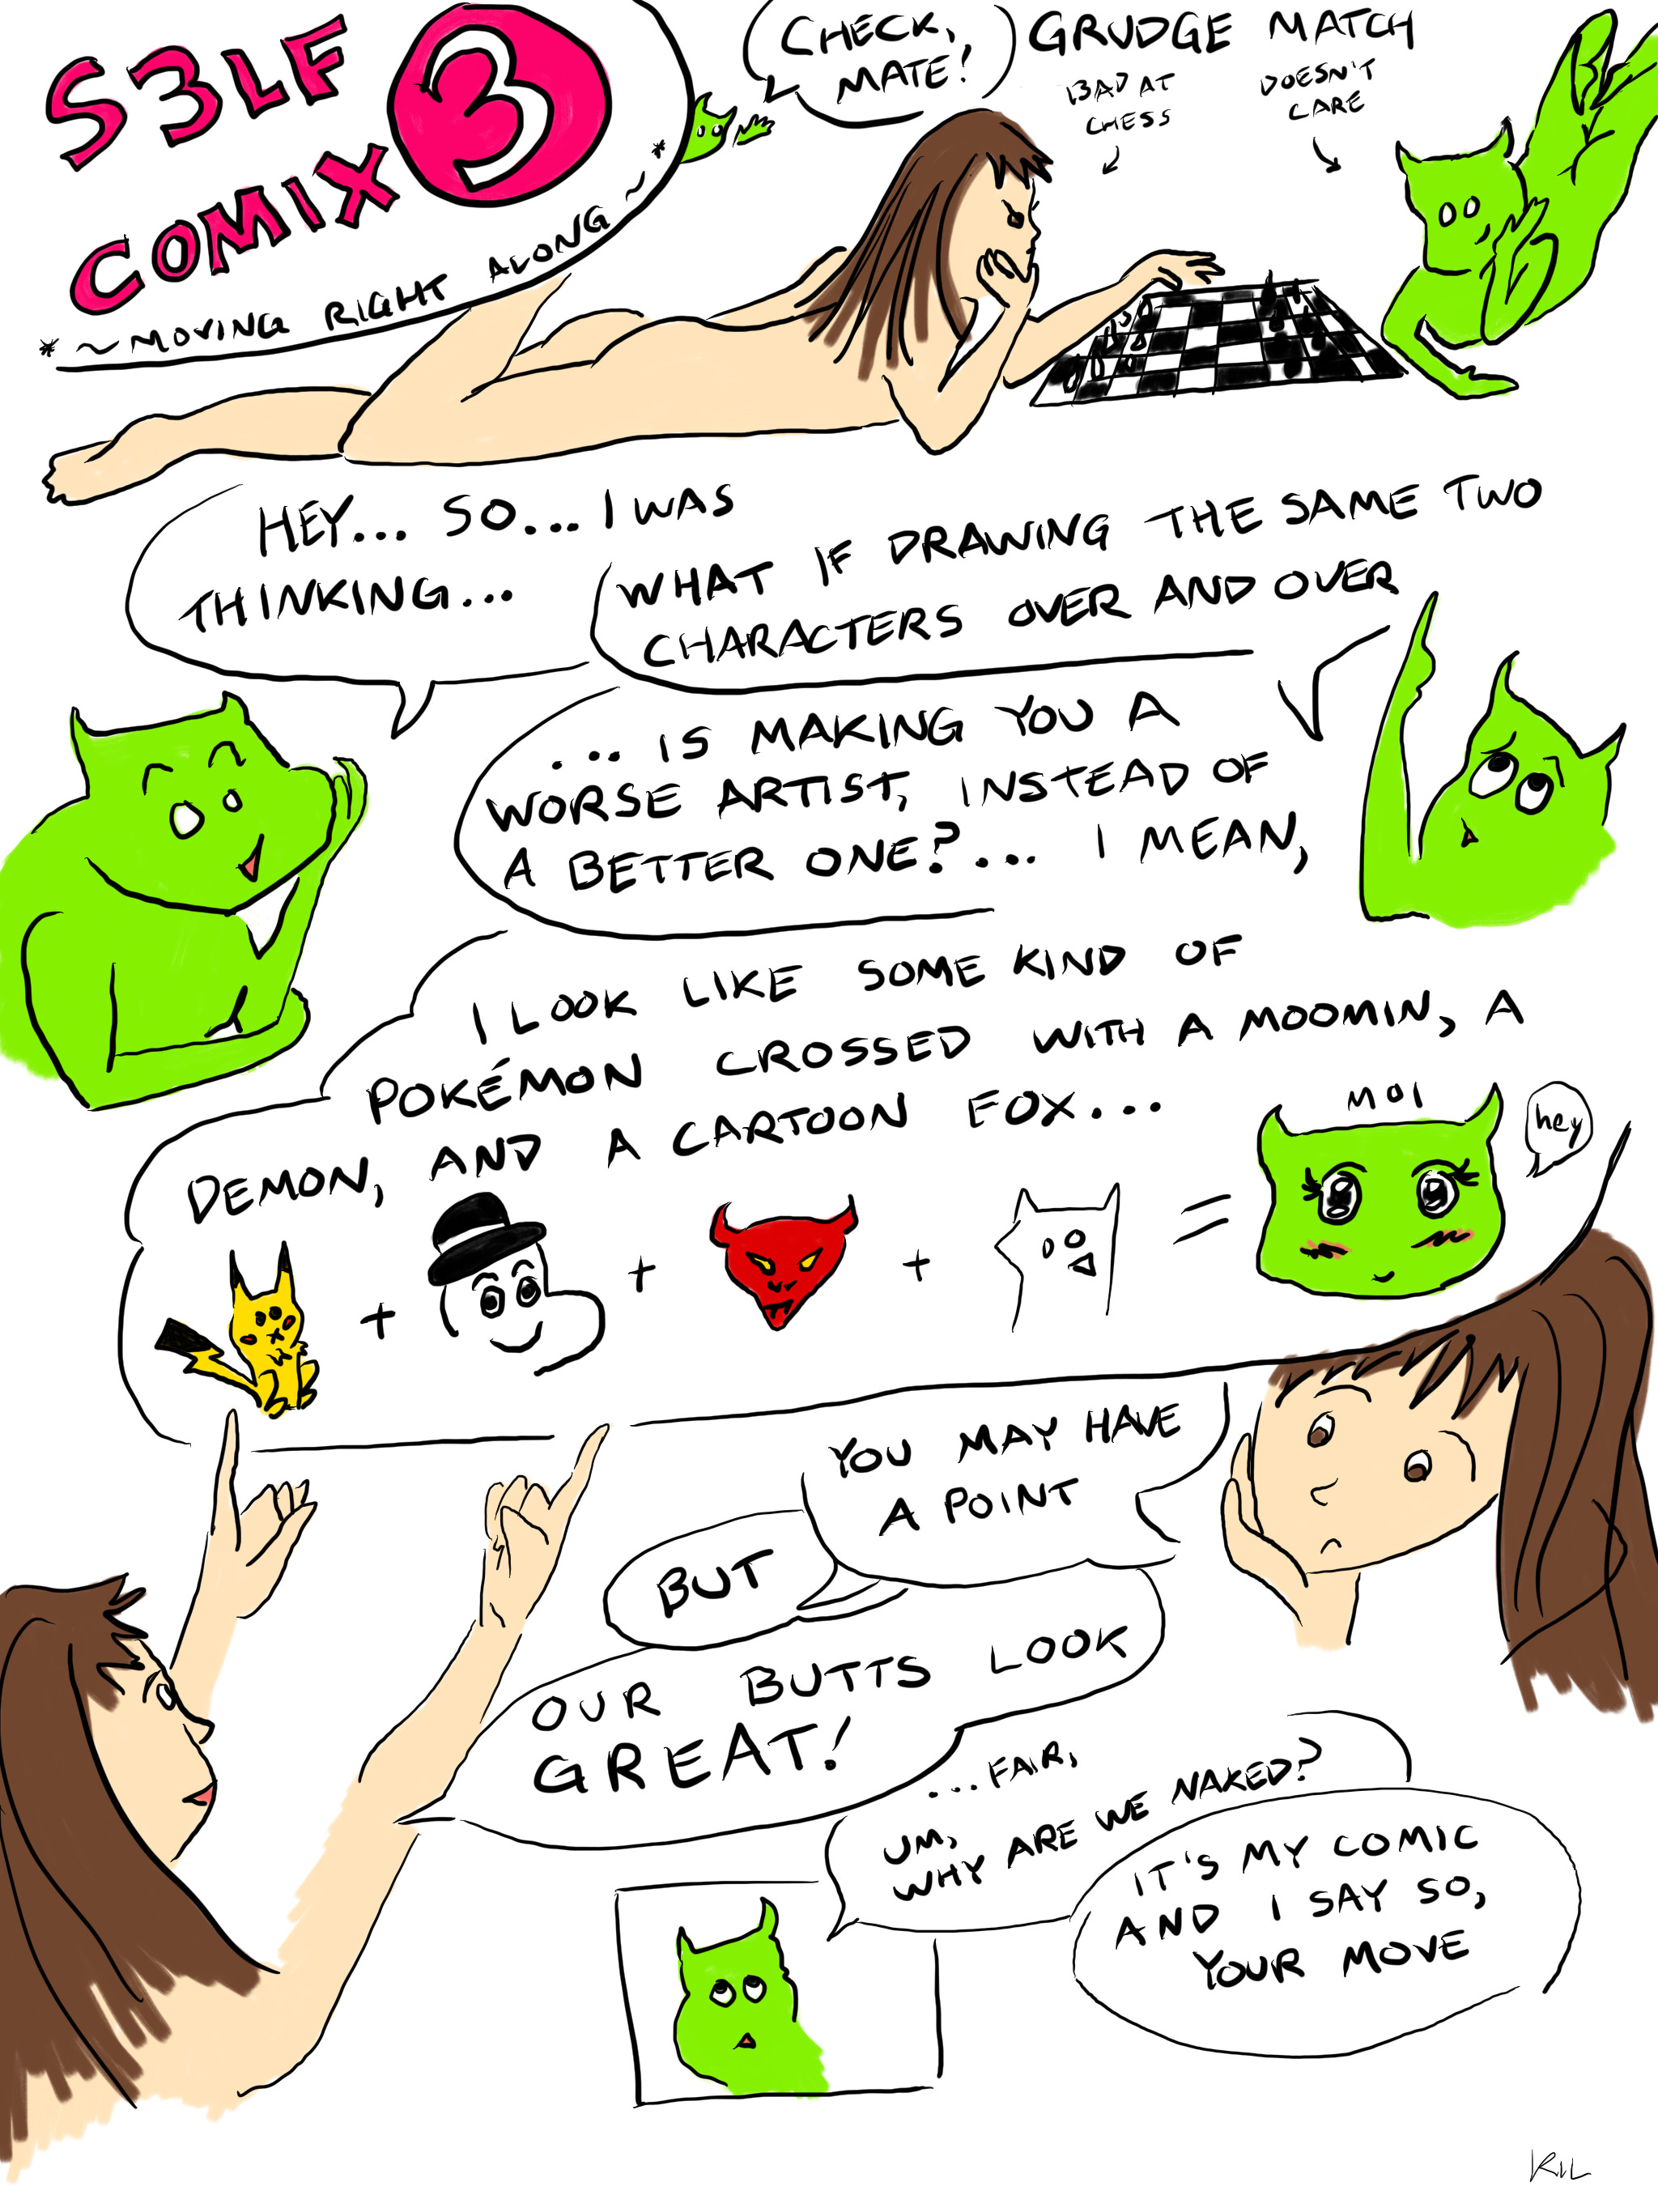 S3LF
COMIX 3
* ~ MOVING RIGHT ALONG ~ *
CHECK,
MATE!
GRUDGE MATCH
BAD AT
CHESS
DOESN'T
CARE
HEY... SO... I WAS
THINKING...
WHAT IF DRAWING THE SAME TWO
CHARACTERS OVER AND OVER
.... IS MAKING YOU A
WORSE ARTIST, INSTEAD OF
A BETTER ONE?... I MEAN,
I LOOK LIKE SOME KIND OF
POKÉMON CROSSED WITH A MOOMIN, A
DEMON, AND A CARTOON FOX...
MOI
hey
+ + + =
YOU MAY HAVE
A POINT
BUT
OUR BUTTS LOOK
GREAT!
...FAIR,
UM,
WHY ARE WE NAKED?
IT'S MY COMIC
AND I SAY SO,
YOUR MOVE